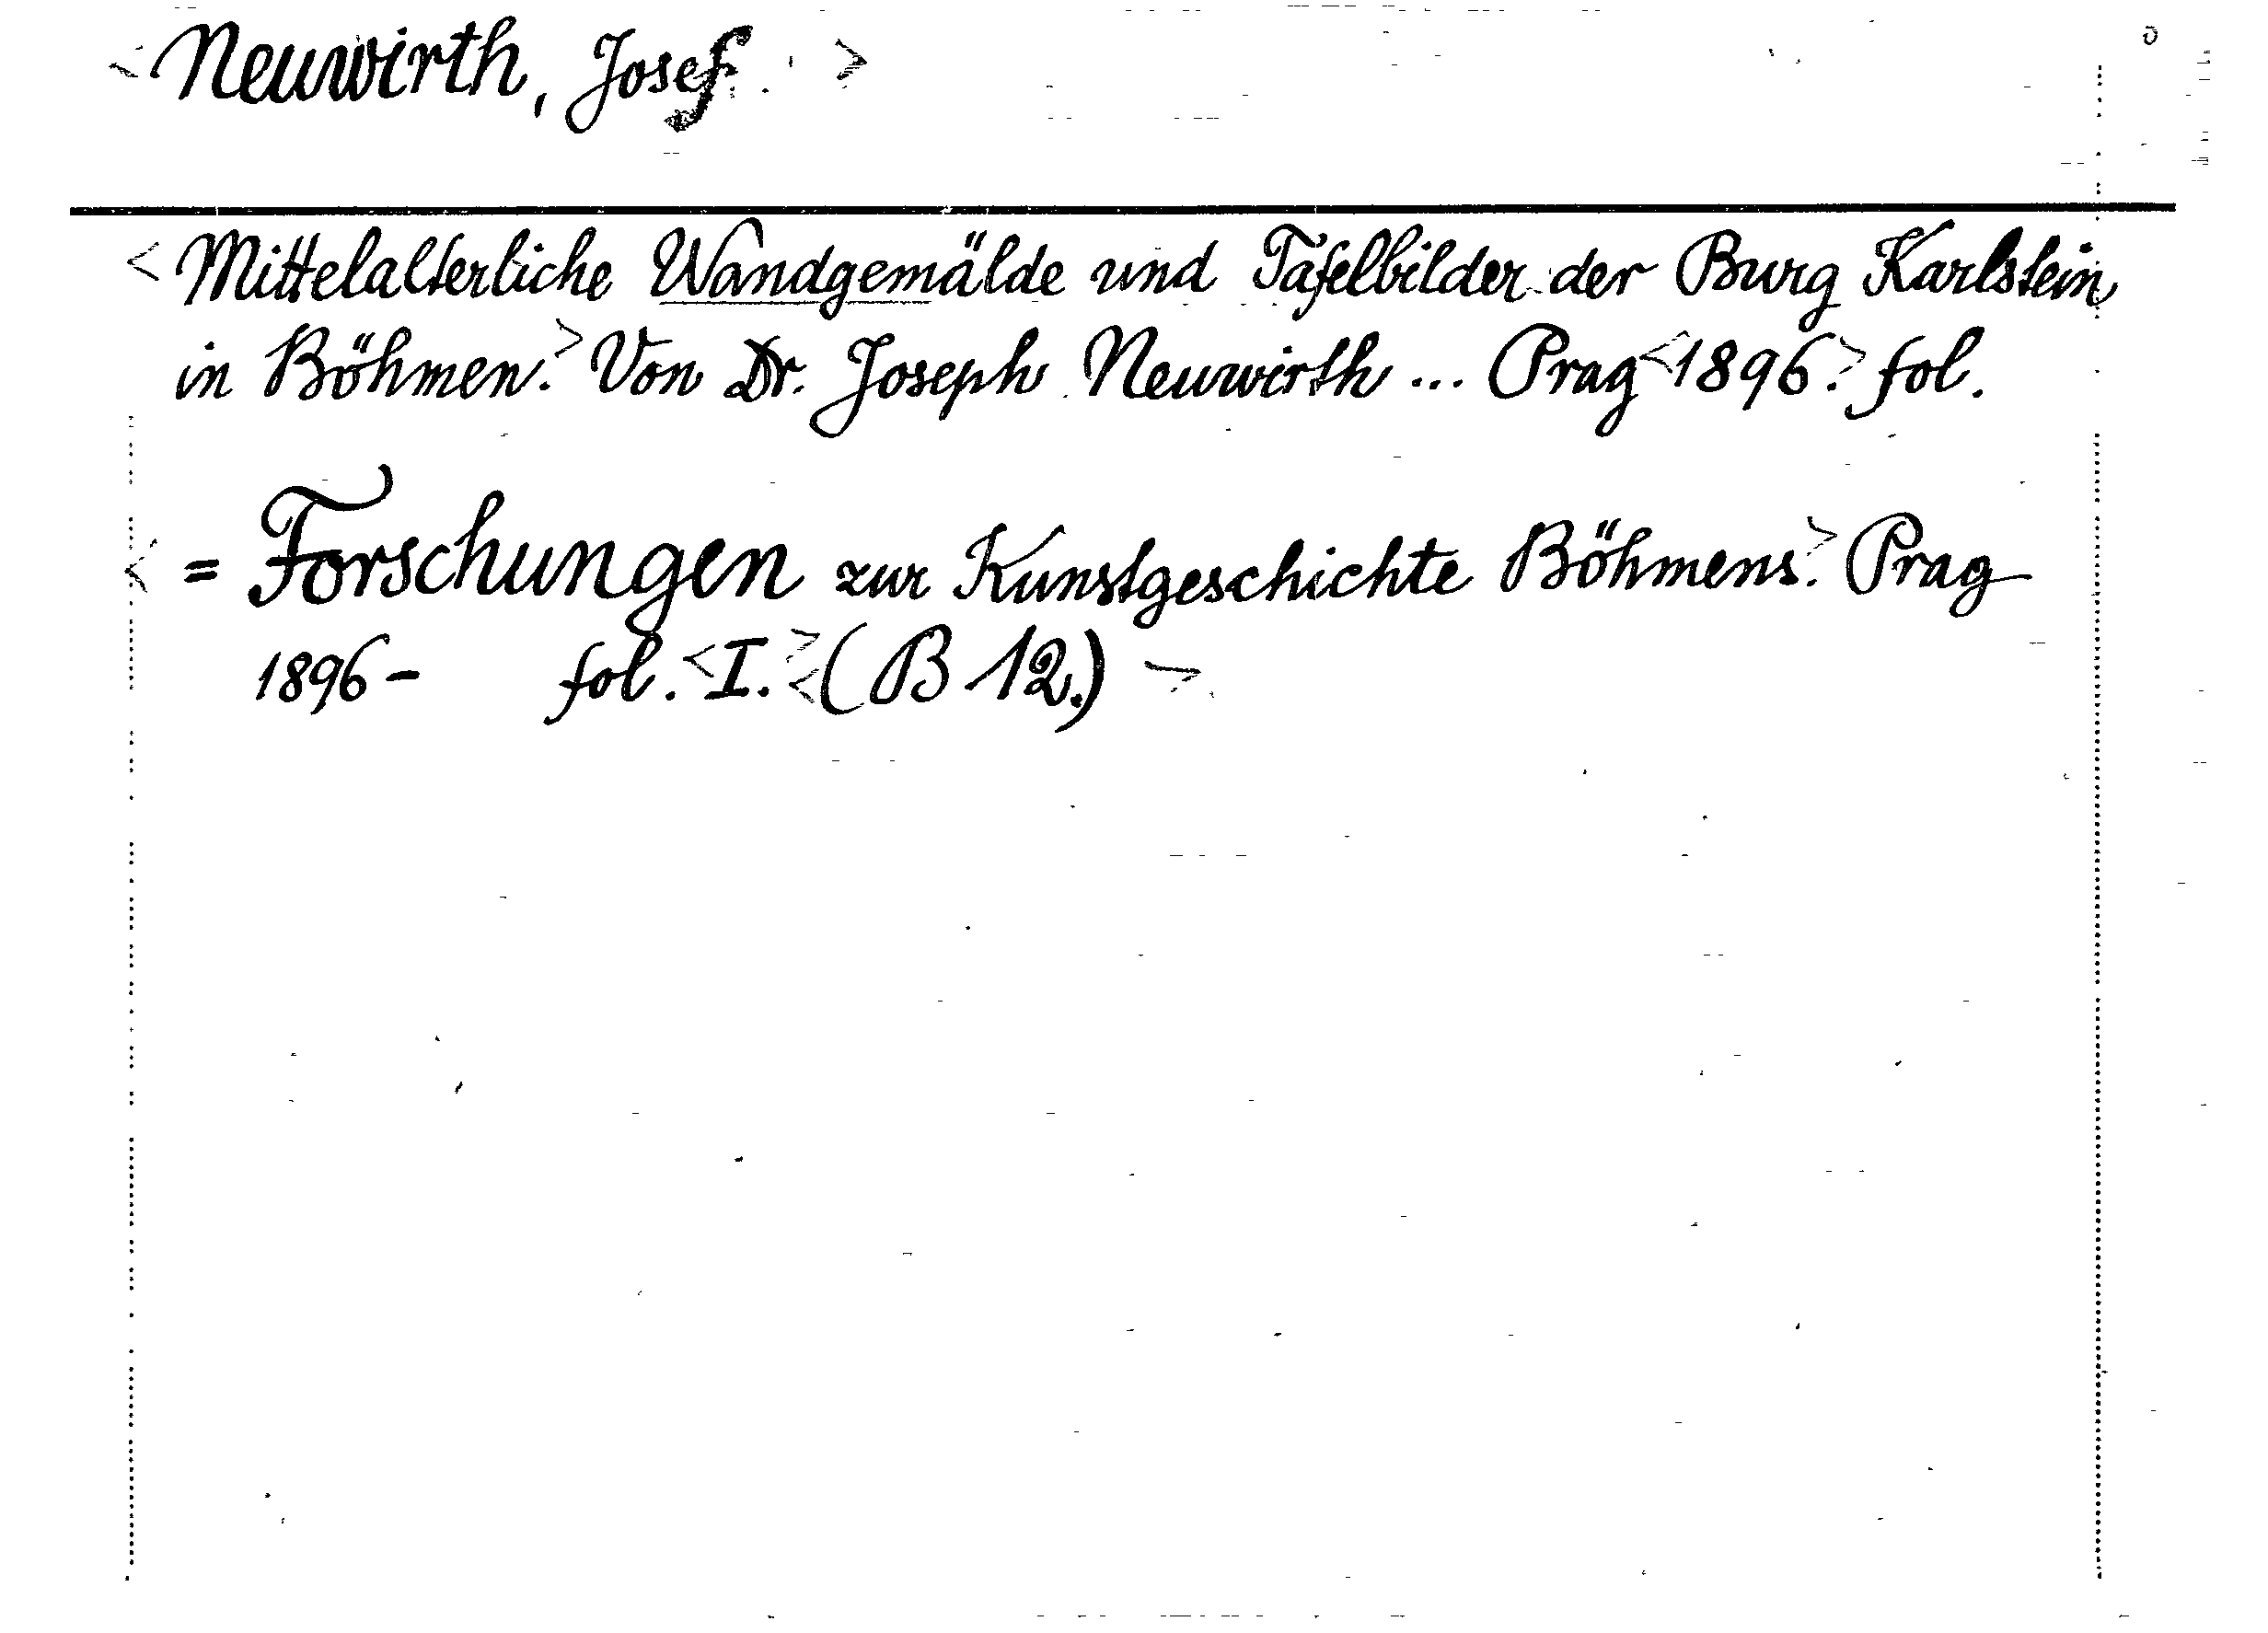 <Neuwirth, Josef.>
<Mittelalterliche Wandgemälde und Tafelbilder der Burg Karlstein
in Böhmen.> Von Dr. Joseph Neuwirth ... Prag <1896.> fol.
<= Forschungen zur Kunstgeschichte Böhmens.> Prag
1896- fol. <I.> <(B 12.)>